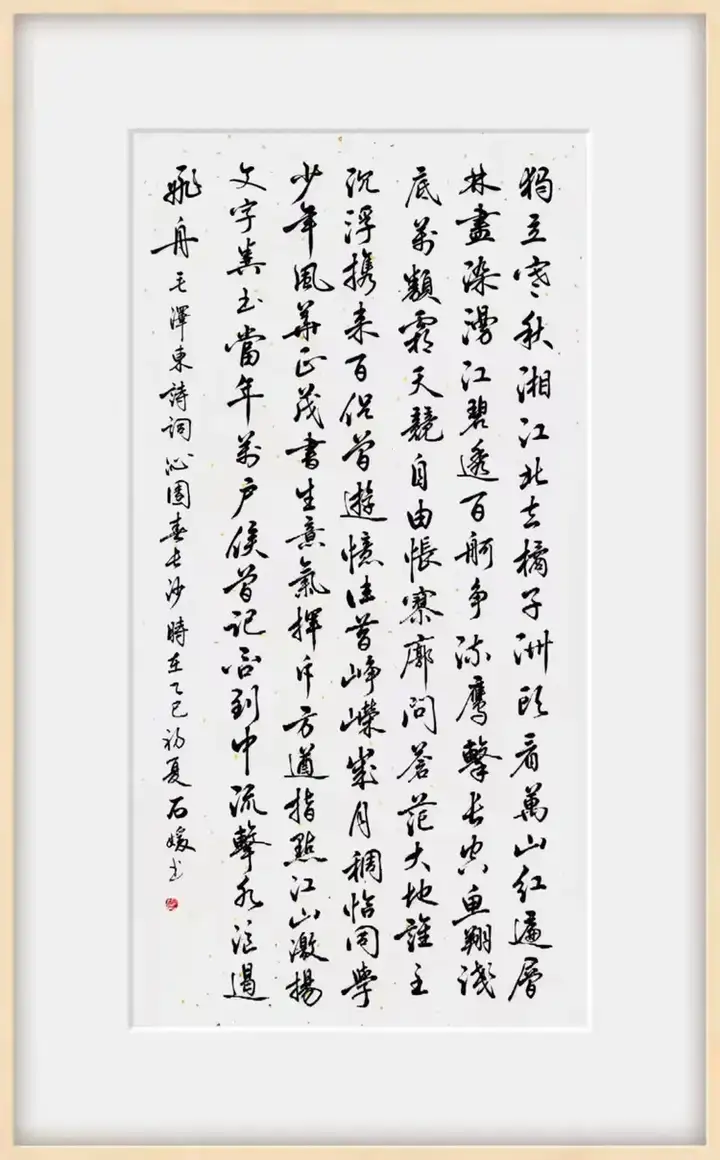 獨立寒秋湘江北去橘子洲頭看萬山红遍層
林盡染漫江碧透百舸争流鹰擊長空魚翔淺
底萬類霜天競自由悵寥廓問蒼茫大地誰主
沉浮携来百侣曾遊憶往昔崢嶸歲月稠恰同學
少年風華正茂書生意氣揮斥方遒指點江山激揚
文字糞土當年萬户侯曾記否到中流擊水浪遏
飛舟 毛澤東詩詞沁園春長沙時在乙巳初夏石媛書